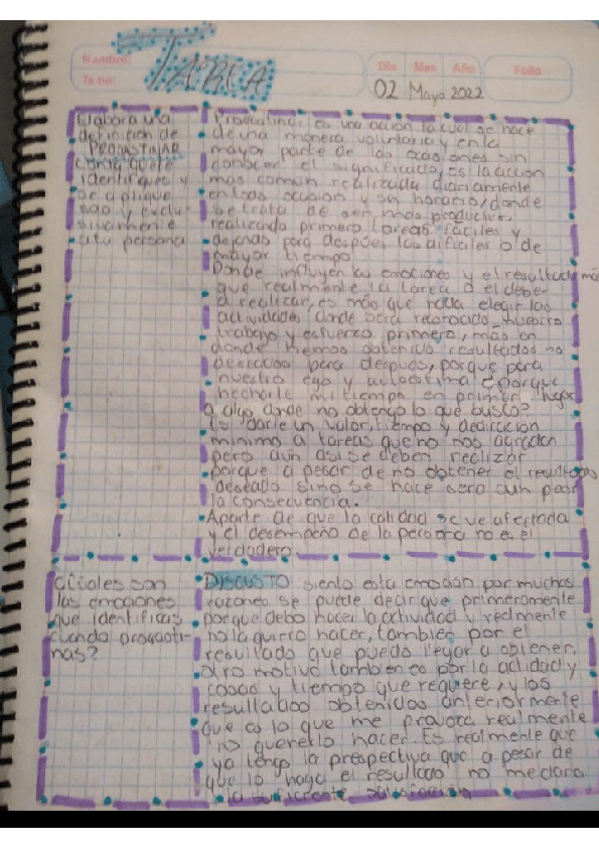 Nombre:
Tema:
TAREA
Día Mes Año
Folio
02 Mayo 2022
Elabora una
definición de
PROCASTINAR
con la que te
identifiques y
se aplique
solo y exclu-
sivamente
a tu persona
Procastinar es una acción la cual se hace
de una manera voluntaria y en la
mayor parte de las ocasiones sin
conocer el significado, es la acción
más común realizada diariamente
en toda ocasión y sin horario, donde
se trata de ser más productivo,
realizando primero tareas fáciles y
dejando para después las dificiles o de
mayor tiempo
Donde influyen las emociones y el resultado más
que realmente la tarea o el deber
a realizar, es más que nada elegir las
actividades donde será reconocido nuestro
trabajo y esfuerzo primero, más en
donde hemos obtenido resultados no
deseados para después, porque para
nuestro ego y autoestima ¿porque
hecharle mi tiempo en primer lugar
a algo donde no obtengo lo que busco?
Es darle un valor, tiempo y dedicación
minimo a tareas que no nos agradan
pero aun asi se deben realizar
porque a pesar de no obtener el resultado
deseado si no se hace sera aun peor
la consecuencia.
Aparte de que la calidad se ve afectada
y el desempeño de la persona no es el
verdadero.
¿Cúales son
las emociones
que identificas
cuando procasti-
nas?
DISGUSTO siento esta emoción por muchas
razones se puede decir que primeramente
porque debo hacer la actividad y realmente
no la quiero hacer, tambien por el
resultado que puedo llegar a obtener,
otro motivo tambien es por la actidad y
cosas y tiempo que requiere, y los
resultados obtenidos anteriormente
que es lo que me provoca realmente
no quererlo hacer. Es realmente que
ya tengo la prespectiva que a pesar de
que lo haga el resultado no me dara
la suficiente satisfacción